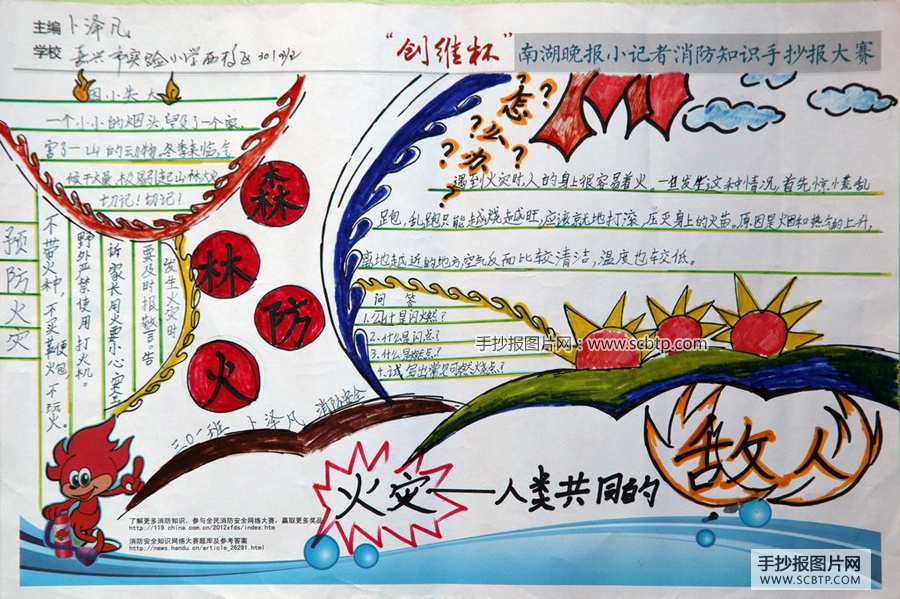 主编 卜泽凡
学校 嘉兴市实验小学西校区301班
“创维杯”南湖晚报小记者消防知识手抄报大赛
因小失大
一个小小的烟头,毁了一个家,
害了一山的动物,冬季来临,气
候干燥,极易引起山林大火
切记!切记!
预防火灾
不带火种,不买鞭炮,不玩火。
野外严禁使用打火机。
诉家长用火要小心安全
要及时报警。告
发生火灾时
森
林
防
火
怎么办???
遇到火灾时,人的身上很容易着火。一旦发生这种情况,首先惊慌乱
跑,乱跑只能越烧越旺,应该就地打滚,压灭身上的火苗。原因是火因和热气的上升,
离地越近的地方空气反而比较清洁,温度也较低。
问 答
1.什么是闪燃?
2.什么是闪点?
3.什么是燃点?
4.试写出常见可燃物燃点?
手抄报图片网:www.scbtp.com
三〇一班 卜泽凡 消防安全
火灾——人类共同的敌人
了解更多消防知识,参与全民消防安全网络大赛,赢取更多奖品
http://119.china.com.cn/2012xfds/index.htm
消防安全知识网络大赛题库及参考答案
http://news.handu.cn/article_26291.html
手抄报图片网
WWW.SCBTP.COM